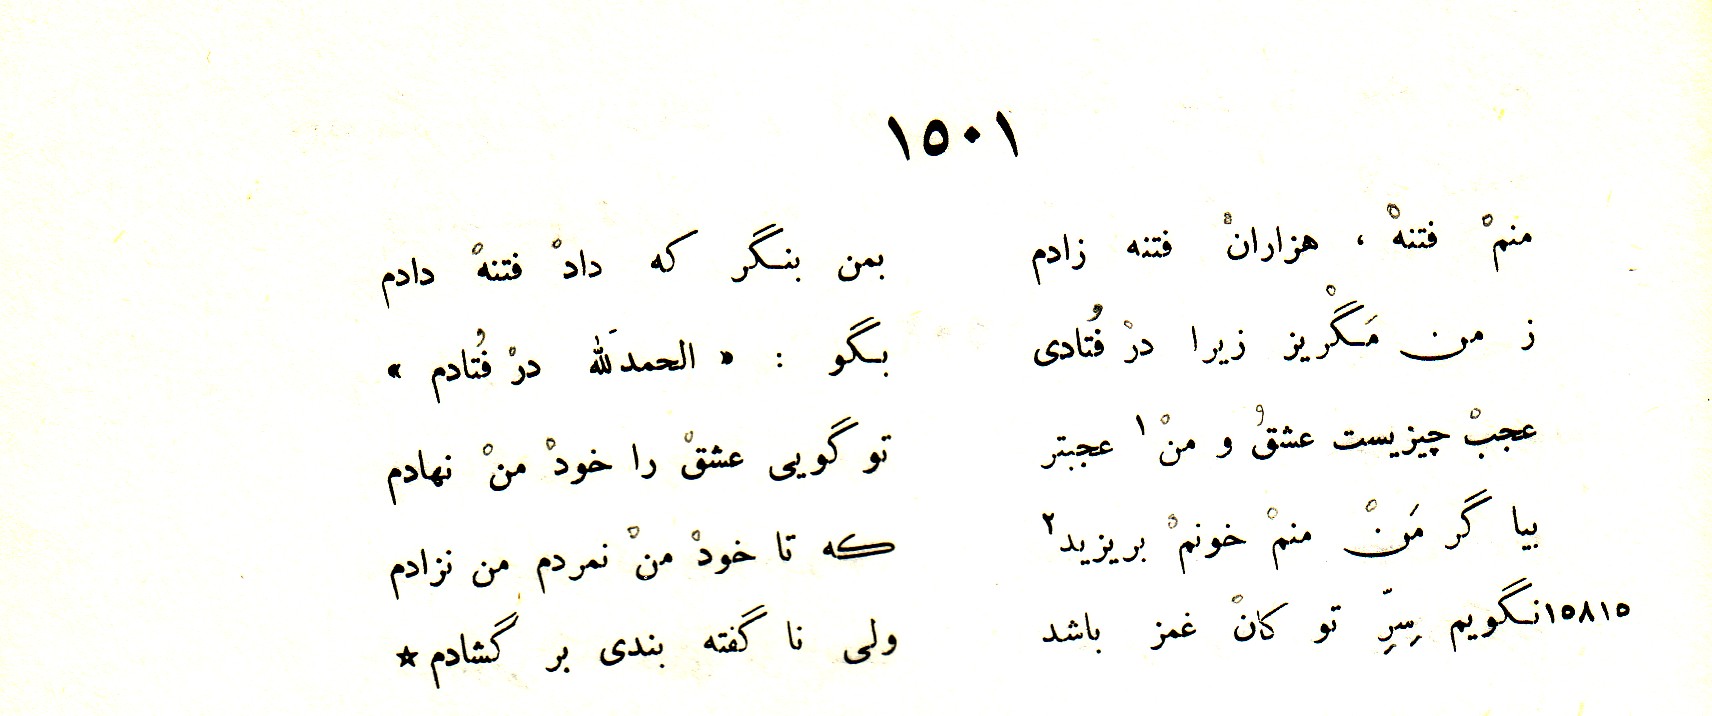 ١٥٠١
منمْ فتنهْ ، هزارانْ فتنه زادم بمن بنگر که دادْ فتنهْ دادم
ز من مَگْریز زیرا درْ فُتادی بگو : « الحمدلَله درْ فُتادم »
عجبْ چیزیست عشقُ و منْ ١ عجبتر تو گویی عشقْ را خودْ منْ نهادم
بیا گر مَنْ منمْ خونمْ بریزید ٢ که تا خودْ منْ نمردم من نزادم
١٥٨١٥ نگویم سِرِّ تو کانْ غمز باشد ولی نا گفته بندی بر گشادم ☆